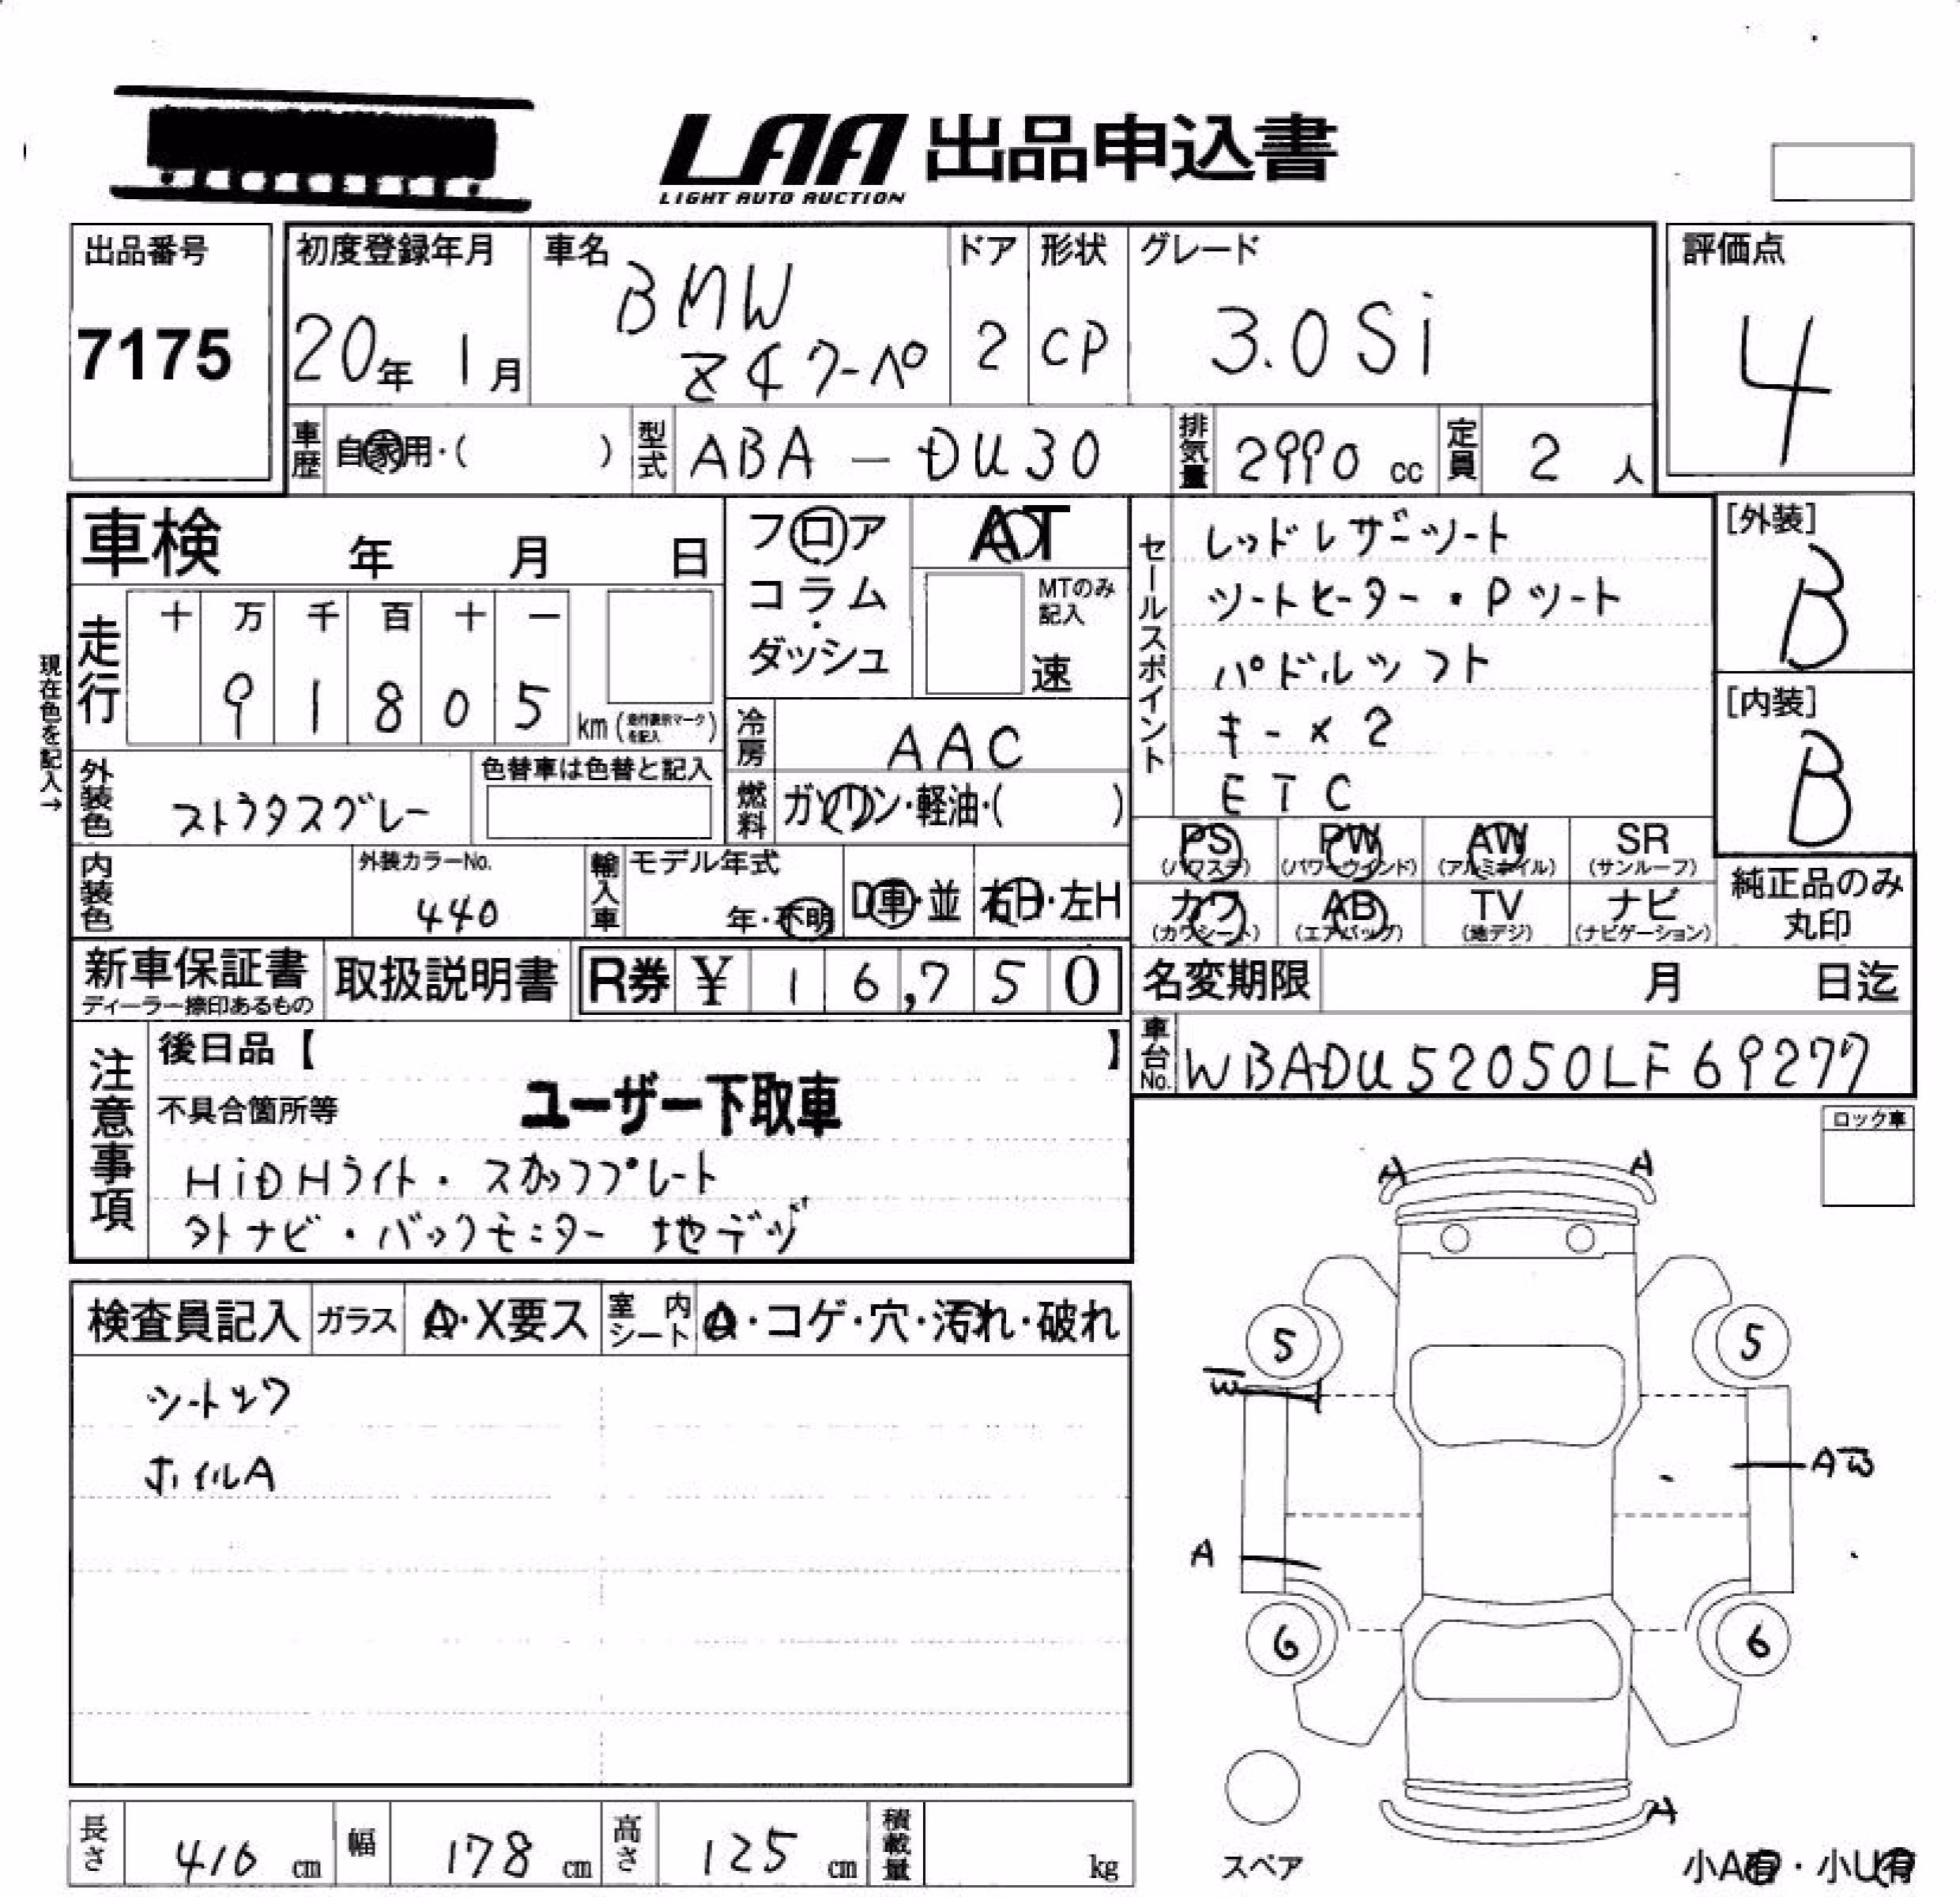 LAA 出品申込書
LIGHT AUTO AUCTION
出品番号
7175
初度登録年月
20年 1月
車名
BMW
Z4クーペ
ドア
2
形状
CP
グレード
3.0Si
評価点
4
車歴 自家用・( )
型式 ABA-DU30
排気量 2990 cc
定員 2 人
車検 年 月 日
フロア
コラム
・
ダッシュ
AT
MTのみ
記入
速
走行
十 万 千 百 十 一
9 1 8 0 5
km
現在色を記入→
冷房 AAC
燃料 ガソリン・軽油・( )
外装色 ストラタスグレー
色替車は色替と記入
内装色
外装カラーNo.
440
輸入車
モデル年式
年・不明
D車・並
右H・左H
セールスポイント
レッドレザーシート
シートヒーター・Pシート
パドルシフト
キー×2
ETC
[外装]
B
[内装]
B
PS
(パワステ)
PW
(パワーウインド)
AW
(アルミホイル)
SR
(サンルーフ)
カワ
(カワシート)
AB
(エアバッグ)
TV
(地デジ)
ナビ
(ナビゲーション)
純正品のみ
丸印
新車保証書
ディーラー捺印あるもの
取扱説明書
R券 ¥ 1 6,7 5 0
名変期限 月 日迄
車台No. WBADU52050LF69277
注意事項
後日品【 】
不具合箇所等
ユーザー下取車
HiDHライト・スカッフプレート
外ナビ・バックモニター 地デジ
ロック車
検査員記入
ガラス A・X要ス
室内シート A・コゲ・穴・汚れ・破れ
ホイルA
A A
5 5
W
AW
A
6 6
A
スペア
小A有・小U有
長さ 416 cm
幅 178 cm
高さ 125 cm
積載量 kg